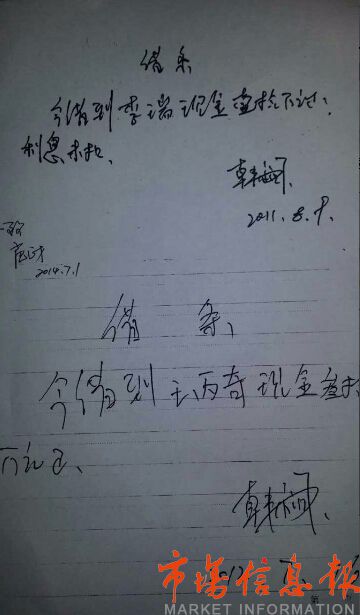 借条
今借到李瑞现金叁拾万元
利息未扣、
韩
2011.8.9.
2014.7.1
借条、
今借到王丙奇现金叁拾
万元正、
韩
市场信息报
MARKET INFORMATION